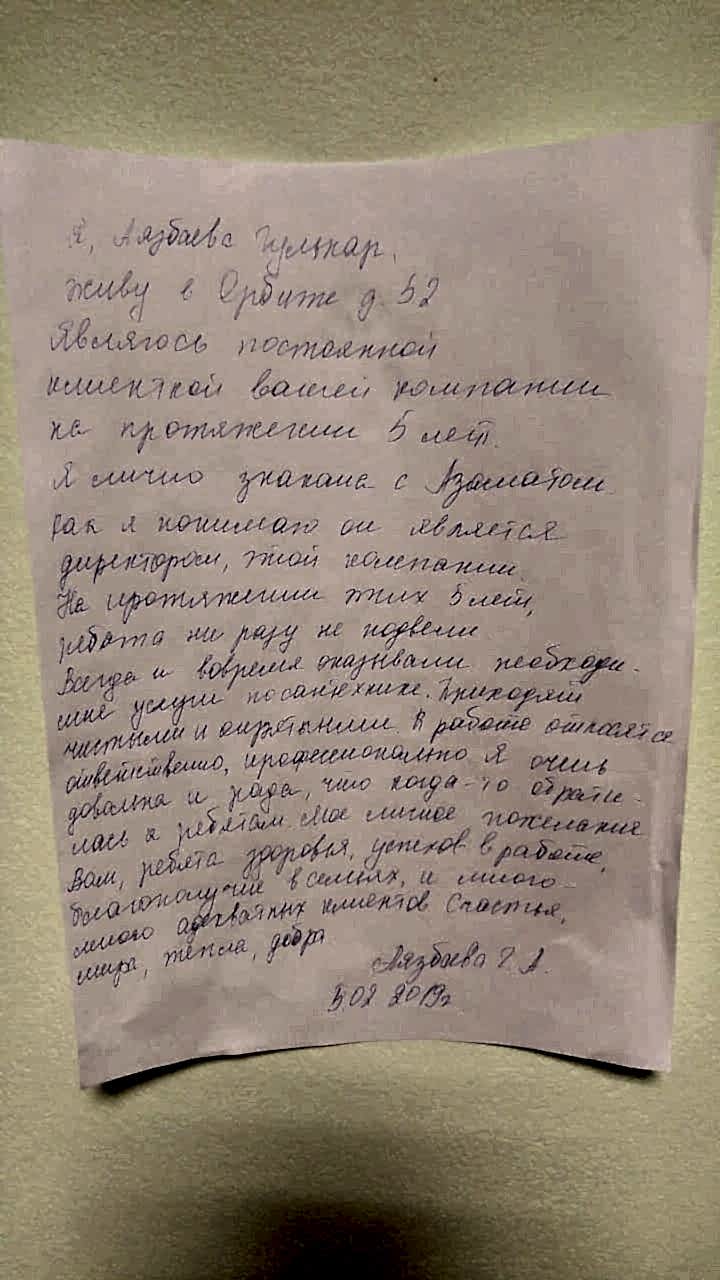 Я, Аязбаева Гульнар,
живу в Орбите д. 52
Являюсь постоянной
клиенткой вашей компании
на протяжении 5 лет.
Я лично знакома с Азаматом.
как я понимаю он является
директором, этой компании.
На протяжении этих 5 лет,
ребята ни разу не подвели.
Всегда и вовремя оказывали необходи-
мые услуги по сантехнике. Приходят
чистыми и опрятными. К работе относятся
ответственно, профессионально. Я очень
довольна и рада, что когда-то обрати-
лась к ребятам. Мое личное пожелание
Вам, ребята здоровья, успехов в работе,
благополучие в семьях, и много-
много адекватных клиентов. Счастья,
мира, тепла, добра.
Аязбаева Г. А.
5.02 2019г.